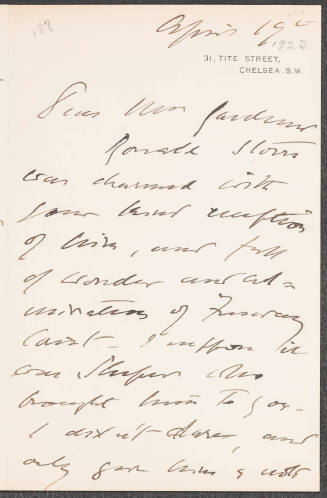 187
April 19th
1923.
31, TITE STREET,
CHELSEA. S.W.
Dear Mrs Gardner
Ronald Storrs
was charmed with
your kind reception
of him, and full
of wonder and ad=
miration of Fenway
Court - I suppose it
was who
brought him to you -
I didn't dare, and
only gave him a note